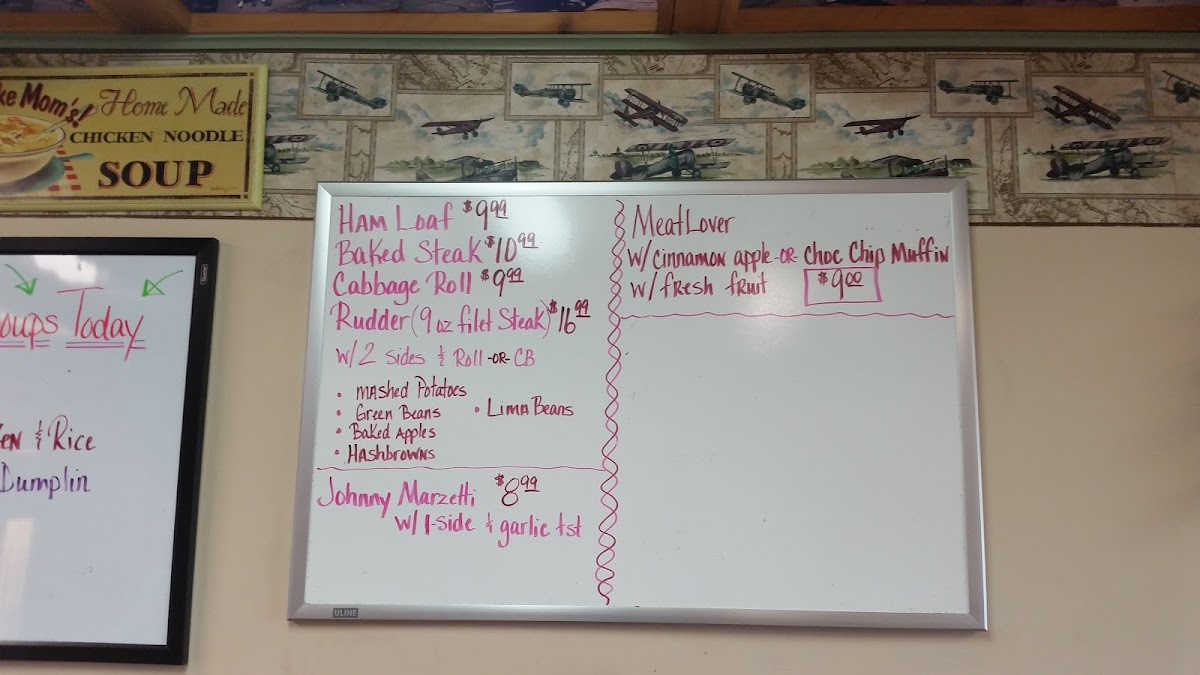 ke Mom's! Home Made
CHICKEN NOODLE
SOUP
oups Today
en & Rice
Dumplin
Ham Loaf $9.99
Baked Steak $10.99
Cabbage Roll $9.99
Rudder (9 oz filet Steak) $16.99
w/2 sides & Roll -OR- CB
• Mashed Potatoes
• Green Beans • Lima Beans
• Baked Apples
• Hashbrowns
Johnny Marzetti $8.99
w/ 1-side & garlic tst
MeatLover
w/cinnamon apple -OR- Choc Chip Muffin
w/ fresh fruit $9.00
ULINE